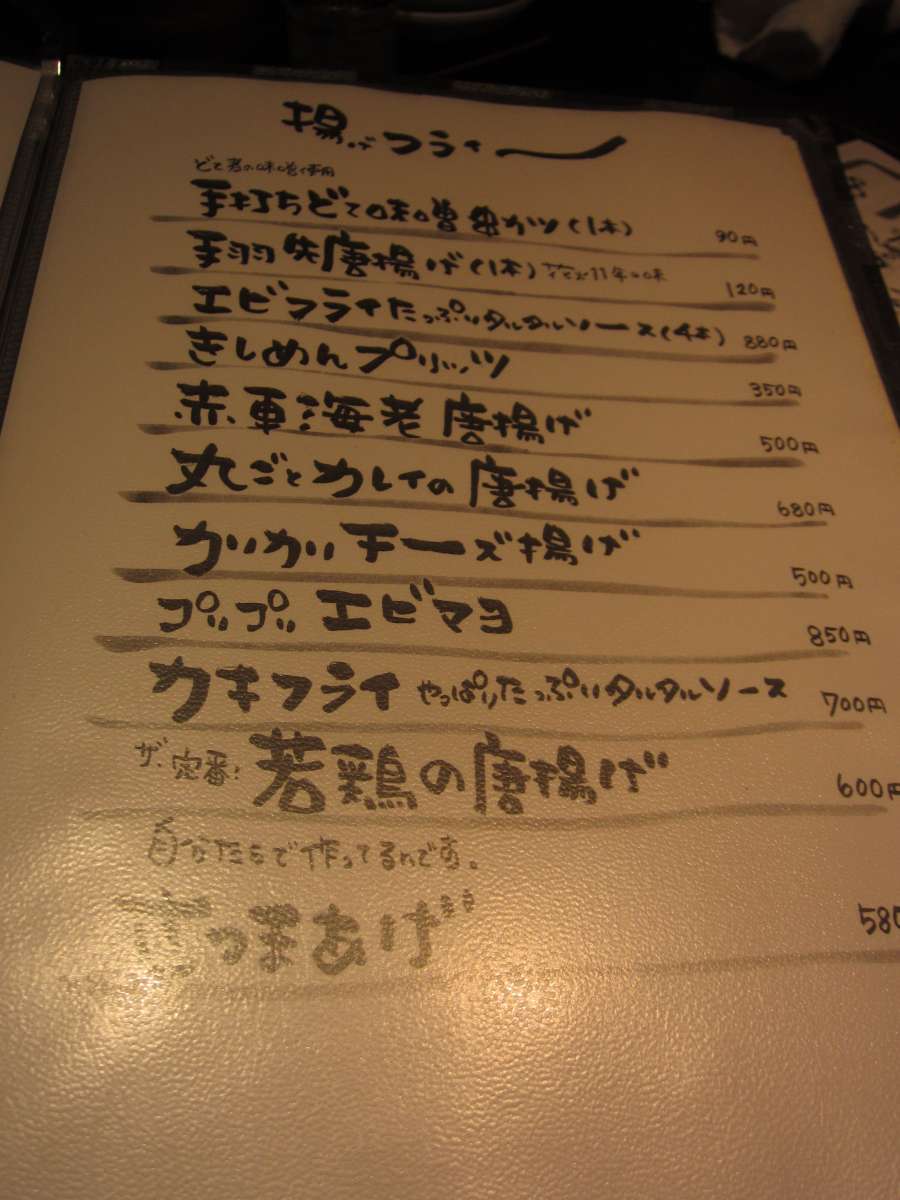 揚げフライ
どて煮の味噌使用
手打ちどて味噌串カツ(1本) 90円
手羽先唐揚げ(1本) 120円
エビフライたっぷりタルタルソース(4本) 880円
きしめんプリッツ 350円
赤車海老唐揚げ 500円
丸ごとカレイの唐揚げ 680円
カリカリチーズ揚げ 500円
プリップリエビマヨ 850円
カキフライ やっぱりたっぷりタルタルソース 700円
ザ、定番! 若鶏の唐揚げ 600円
自分たちで作ってるんです。
さつまあげ 580